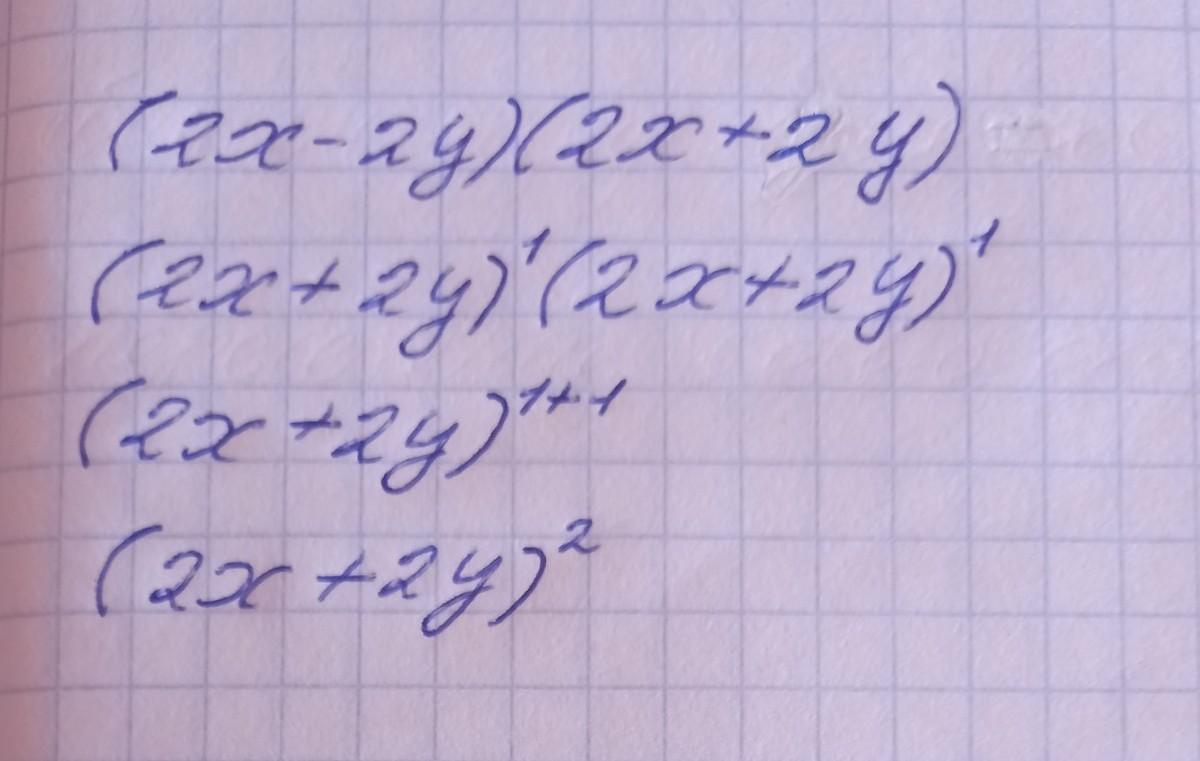 (2x-2y)(2x+2y)
(2x+2y)¹(2x+2y)¹
(2x+2y)¹⁺¹
(2x+2y)²